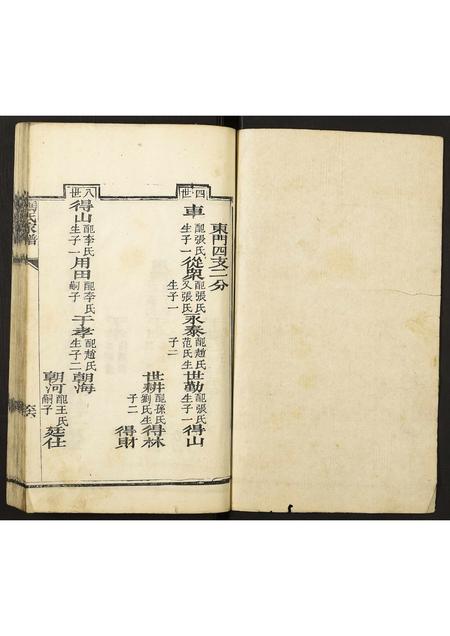 東門四支二分
四世
車 配張氏生子一 從眾 配張氏又張氏生子一 永泰 配趙氏范氏生子二 世勤 配張氏生子一 得山
世耕 配孫氏劉氏生子二 得林
得財
八世
得山 配李氏生子一 用田 配李氏嗣子 于孝 配趙氏生子二 朝海
朝河 配王氏嗣子 廷仕
氏家譜